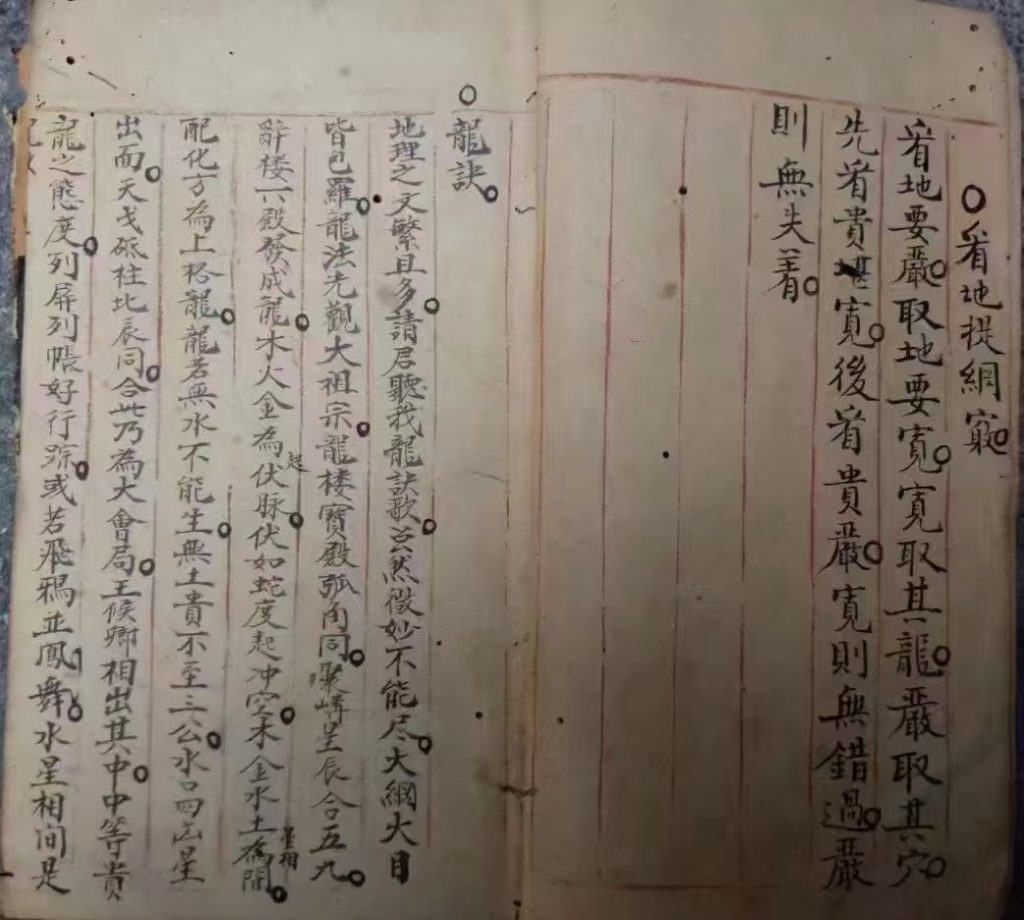 ○看地提綱竅○
看地要嚴○取地要寬○寬取其龍○嚴取其穴○
先看貴堪寬○後看貴嚴○寬則無錯過○嚴
則無失著○
○
龍訣○
地理之文繁且多○請君聽我龍訣歌○玄然微妙不能尽○大綱大目
皆包羅○龍法先觀大祖宗○龍楼寶殿弧角同○聚峰星辰合五九○
辭楼下殿發成龍○木火金為起伏脉○伏如蛇度起冲空○木金水土為星相間○
配化方為上格龍○龍若無水不能生○無土貴不至三公○水口四山星
出面○天戈砥柱北辰同○合此乃為大會局○王候卿相出其中○中等貴
龍之態度○列屏列帳好行踪○或若飛鴉並鳳舞○水星相间是